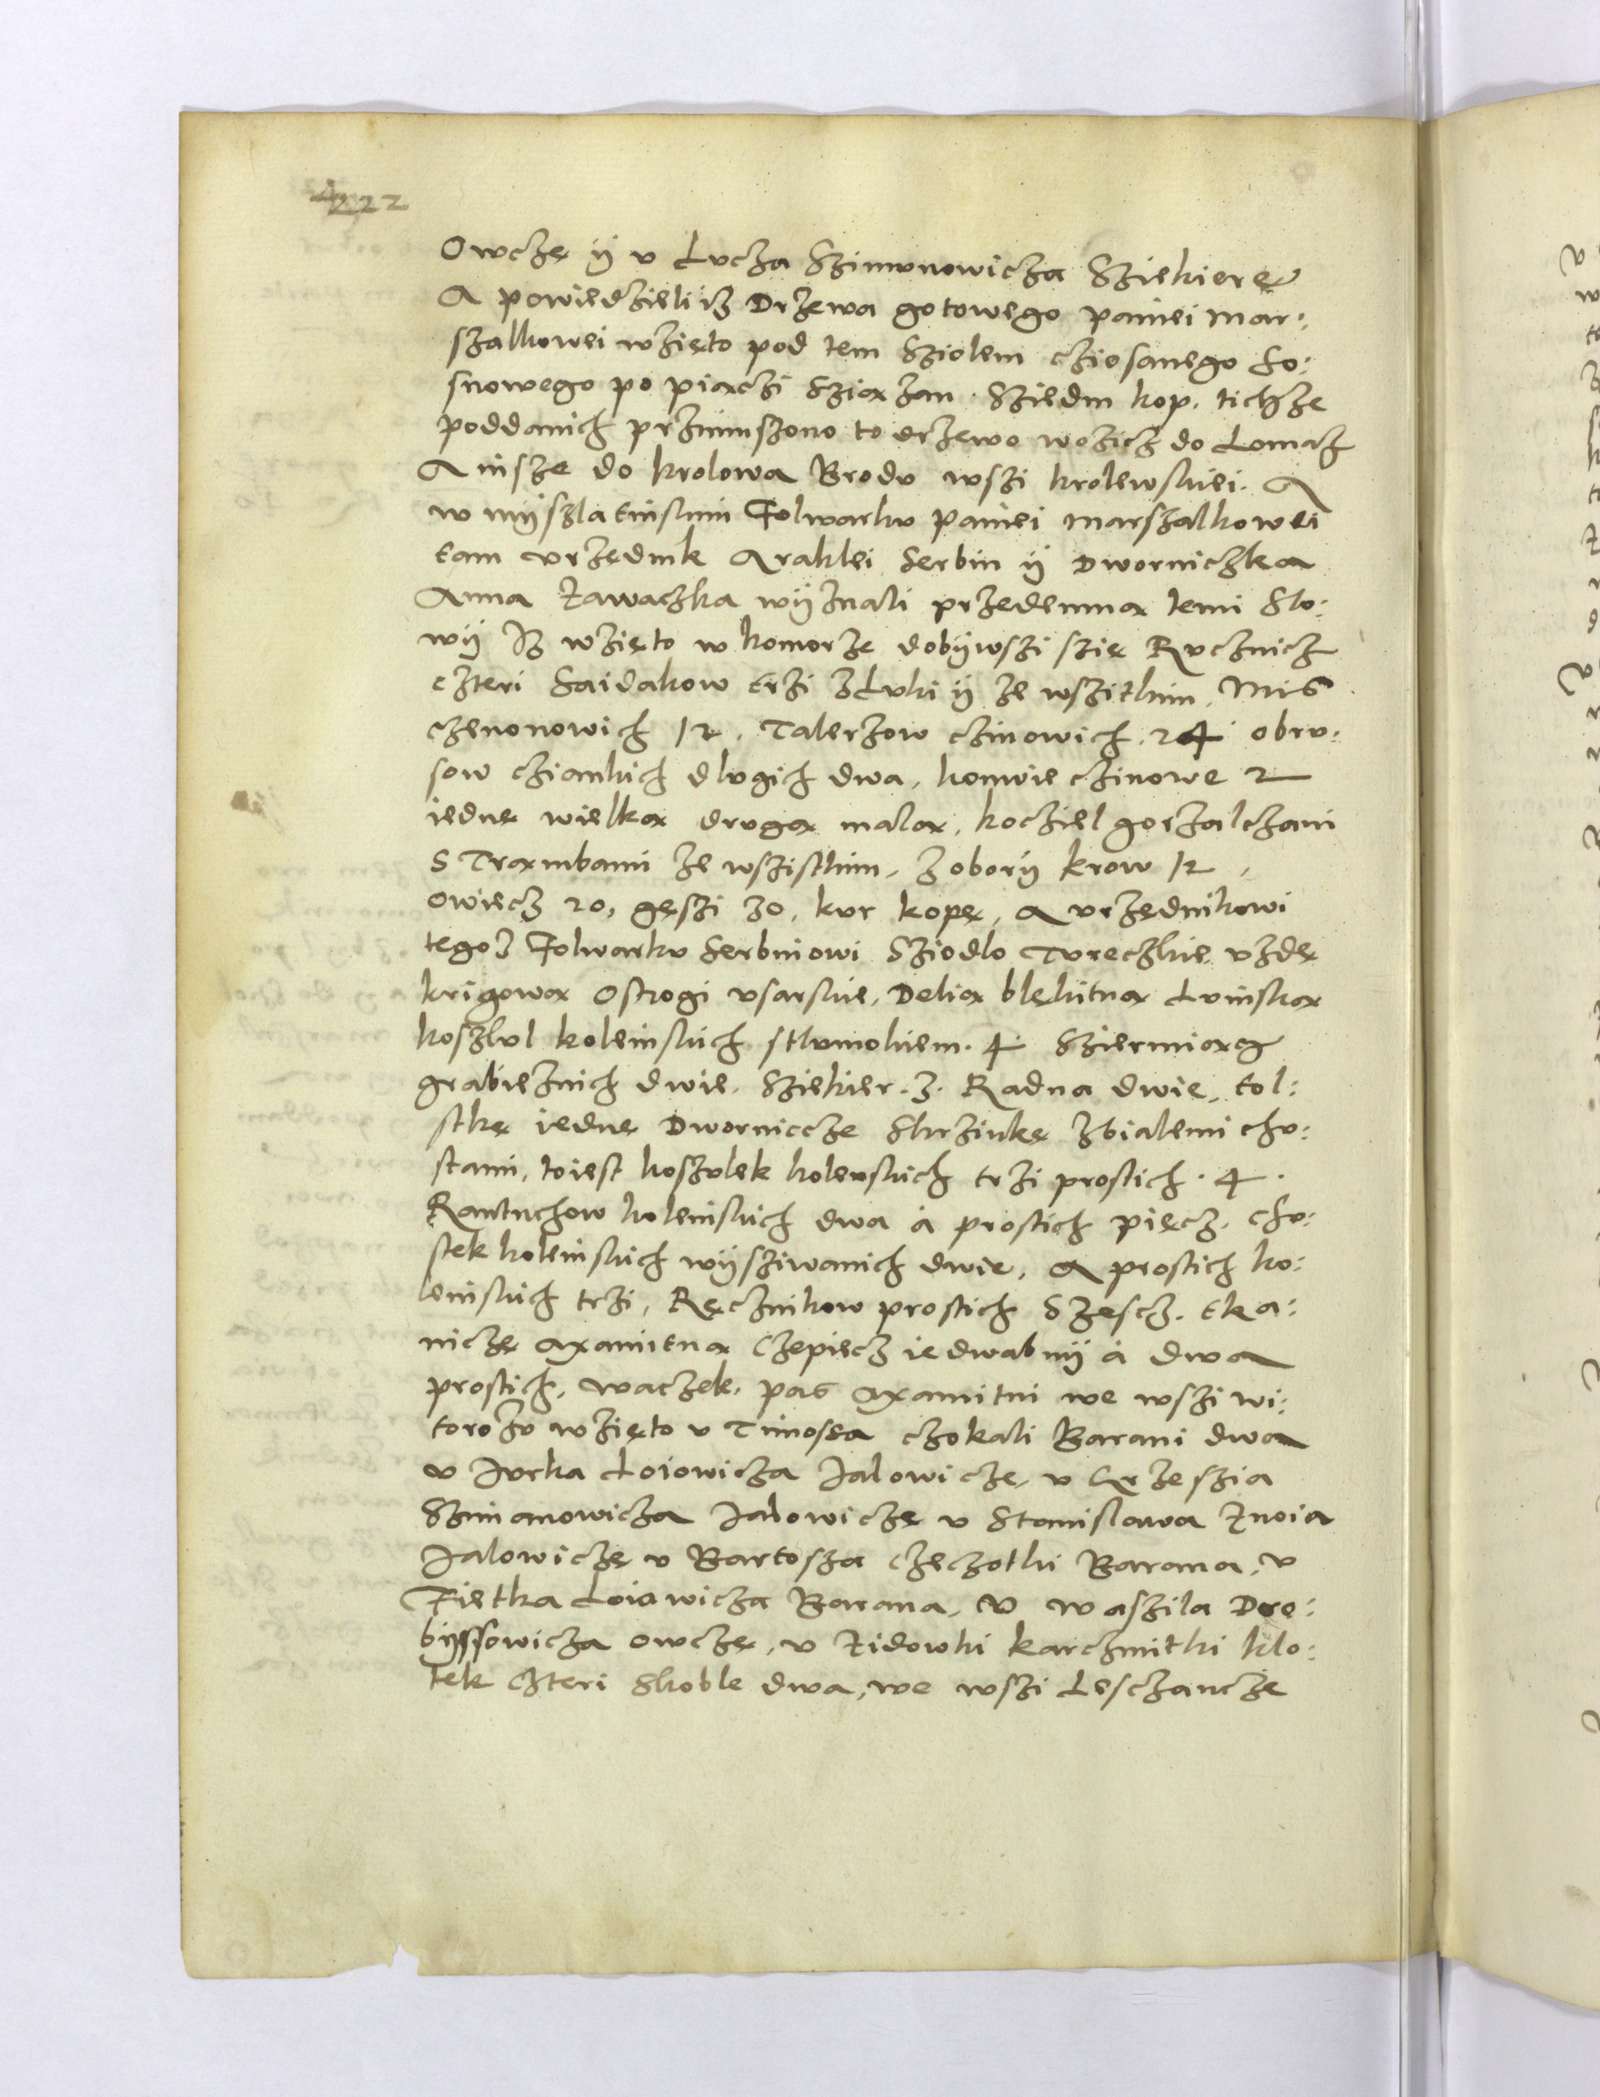 222
Owczę ÿ v Lvcza Szimvnowicza Sziekierę
A powiedzieli iż Drzewa gotowego paniei mar:
szalkowei wzięto pod tem Sziolem cziosanego so:
snowego po piaczi Sziażan. Sziedm kop. tichże
poddanich przimuszono to drzewo wozicz do Lomaz
A insze do krolowa Brodv wszi krolewskiei. A
w mÿszlatinskim Folwarkv paniei marszalkowei
tam vrzędnik Araklei Serbin ÿ Dworniczka
Anna Zawaczka wÿznali przedemną temi Slo:
wÿ Iż wzięto w komorze dobÿwszi szię Rvcznicz
czteri Saidakow trzi z Lvki ÿ ze wszitkim, Mis
czenonowich 12. Talerzow czinowich. 24 obrv:
sow cziankich dlvgich dwa, konwie czinowe 2
iednę wielką drvgą malą, kocziel gorzalczani
S Trąmbami ze wszistkim, z oborÿ krow 12,
owiecz 20, gęszi 30, kvr kopę, A vrzędnikowi
tegoż Folwarkv Serbinowi Sziodlo Tvreczkie vzdę
krigową Ostrogi vsarskie, Delią blękitną Lvinską
koszlvl kolenskich stlvmokiem. 4 Szermięg
grabieznich dwie. Sziekier. 3. Radna dwie, tol:
stkę iednę Dwornicze Skrzinkę z bialemi chv:
stami, toiest koszvlek kolenskich trzi prostich. 4.
Rantuchow kolenskich dwa á prostich pięcz. chv:
stek kolenskich wÿsziwanich dwie, A prostich ko:
lenskich trzi, Ręcznikow prostich Szescz. tka:
niczę axamitną Czepiecz iedwabnÿ á dwa
prostich, waczek, pas axamitni we wszi wi:
torożv wzięto v Timosza czokali Barani dwa
v Jvrka Loiowicza Jalowiczę, v Grzeszia
Szimanowicza Jalowiczę v Stanislawa Znoia
Jalowiczę v Bartosza Czeczotki Barana, v
Fietka Loiowicza Barana, V Waszila Dro:
bÿssowicza owczę, v Zidowki karczmitki klo:
tek Czteri Skoble dwa, we wszi Lesczancze